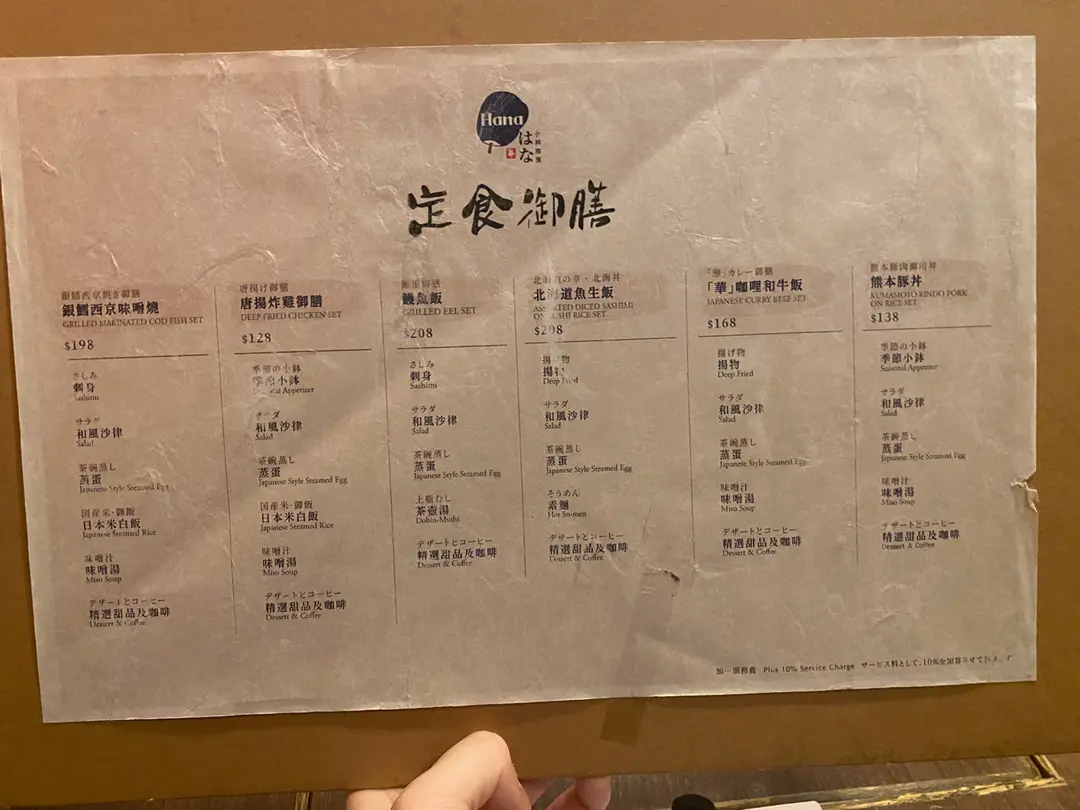 Hana
はな
小料理屋
定食御膳
銀鱈西京焼き御膳
銀鱈西京味噌燒
GRILLED MARINATED COD FISH SET
$198
さしみ
刺身
Sashimi
サラダ
和風沙律
Salad
茶碗蒸し
蒸蛋
Japanese Style Steamed Egg
国産米・御飯
日本米白飯
Japanese Steamed Rice
味噌汁
味噌湯
Miso Soup
デザートとコーヒー
精選甜品及咖啡
Dessert & Coffee
唐揚げ御膳
唐揚炸雞御膳
DEEP FRIED CHICKEN SET
$128
季節の小鉢
季節小鉢
Seasonal Appetizer
サラダ
和風沙律
Salad
茶碗蒸し
蒸蛋
Japanese Style Steamed Egg
国産米・御飯
日本米白飯
Japanese Steamed Rice
味噌汁
味噌湯
Miso Soup
デザートとコーヒー
精選甜品及咖啡
Dessert & Coffee
鰻魚飯
GRILLED EEL SET
$208
さしみ
刺身
Sashimi
サラダ
和風沙律
Salad
茶碗蒸し
蒸蛋
Japanese Style Steamed Egg
土瓶むし
茶壺湯
Dobin-Mushi
デザートとコーヒー
精選甜品及咖啡
Dessert & Coffee
北海道の幸・北海丼
北海道魚生飯
ASSORTED DICED SASHIMI
ON SUSHI RICE SET
$208
揚げ物
揚物
Deep Fried
サラダ
和風沙律
Salad
茶碗蒸し
蒸蛋
Japanese Style Steamed Egg
そうめん
素麵
Hot So-men
デザートとコーヒー
精選甜品及咖啡
Dessert & Coffee
「華」カレー御膳
「華」咖哩和牛飯
JAPANESE CURRY BEEF SET
$168
揚げ物
揚物
Deep Fried
サラダ
和風沙律
Salad
茶碗蒸し
蒸蛋
Japanese Style Steamed Egg
味噌汁
味噌湯
Miso Soup
デザートとコーヒー
精選甜品及咖啡
Dessert & Coffee
熊本豚丼
KUMAMOTO RINDO PORK
ON RICE SET
$138
季節の小鉢
季節小鉢
Seasonal Appetizer
サラダ
和風沙律
Salad
茶碗蒸し
蒸蛋
Japanese Style Steamed Egg
味噌汁
味噌湯
Miso Soup
デザートとコーヒー
精選甜品及咖啡
Dessert & Coffee
加一服務費 Plus 10% Service Charge サービス料として、10%を加算させて